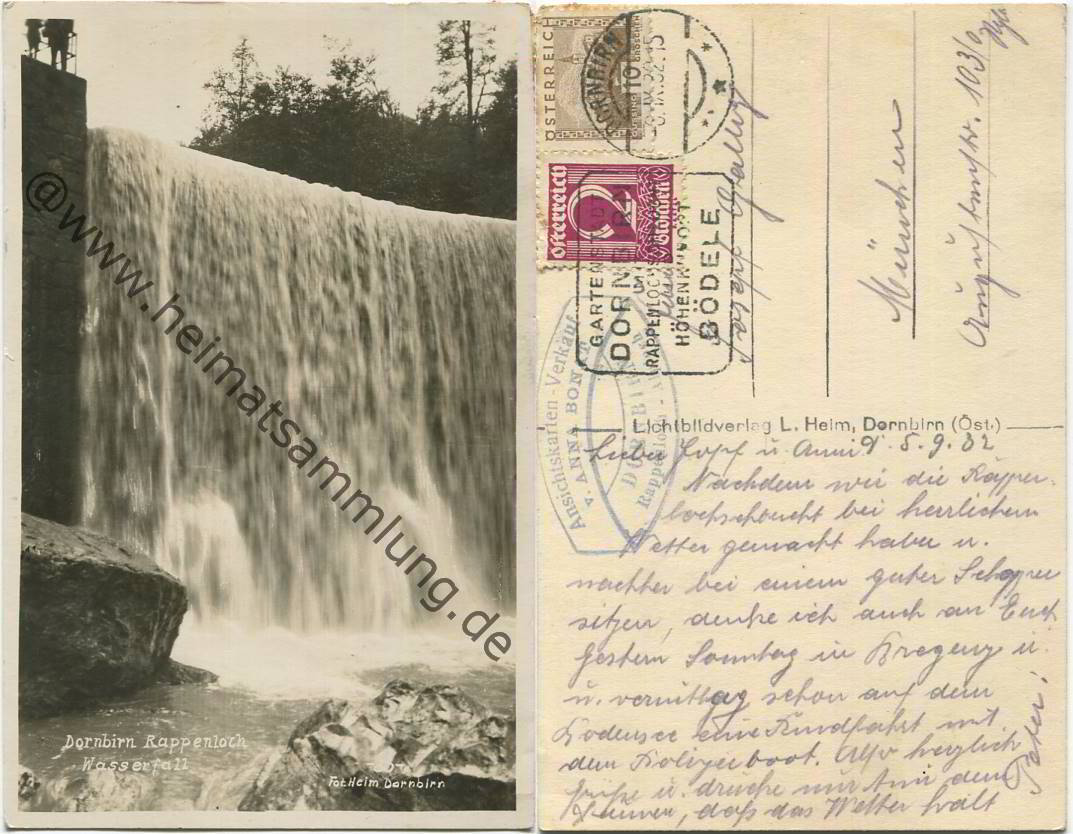 Dornbirn Rappenloch
Wasserfall
Fot. Heim Dornbirn
@www.heimatsammlung.de
ÖSTERREICH
GROSCHEN
DORNBIRN
10
Österreich
2
Groschen
GARTENSTADT
DORNBIRN
RAPPENLOCHSCHLUCHT
HÖHENKURORT
BÖDELE
Ansichtskarten-Verkauf
v. ANNA BON
DORNBIRN
Rappenloch
Josef
München
103/0
Lichtbildverlag L. Heim, Dornbirn (Öst.)
Lieber u. Anni 5.9.32
Nachdem wir die Rappen-
lochschlucht bei herrlichem
Wetter gemacht haben u.
nachher bei einem guten
sitzen, denke ich auch an Euch
Gestern Sonntag in Bregenz u.
u. vormittag schon auf dem
Bodensee eine Rundfahrt mit
dem Polizeiboot. Also herzlich
Grüße u. drücke mir den
Daumen, daß das Wetter hält
Peter!